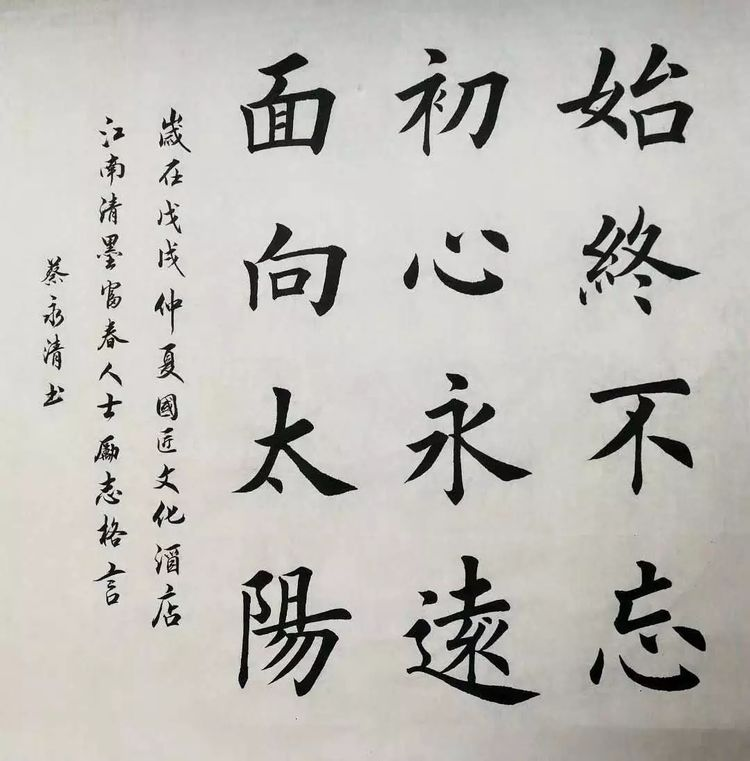 始終不忘
初心永遠
面向太陽
歲在戊戌仲夏國匠文化酒店
江南清墨富春人士勵志格言
蔡永清书